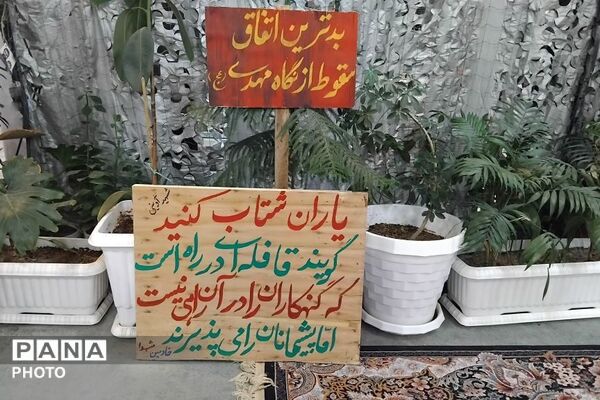 بدترین اتفاق
سقوط از نگاه مهدی (عج)
یاران شتاب کنید
گویند قافله‌ای در راه است
که گنهکاران را در آن راهی نیست
اما پشیمانان را می پذیرند
PANA
PHOTO